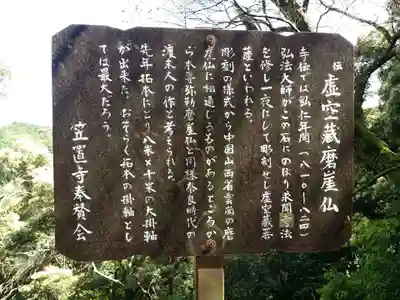 伝 虚空蔵磨崖仏
寺伝では弘仁年間(八一〇~八二四)
弘法大師がこの石にのぼり求聞持法
を修し一夜にして彫刻せし虚空蔵菩
薩といわれる。
彫刻の様式から中国山西省雲崗の磨
崖仏に相通じるものがあるところか
ら本尊弥勒磨崖仏と同様奈良時代の
渡来人の作と考えられる。
先年拓本にとり八米×十米の大掛軸
が出来た。おそらく拓本の掛軸とし
ては最大だろう。
笠置寺奉賛会